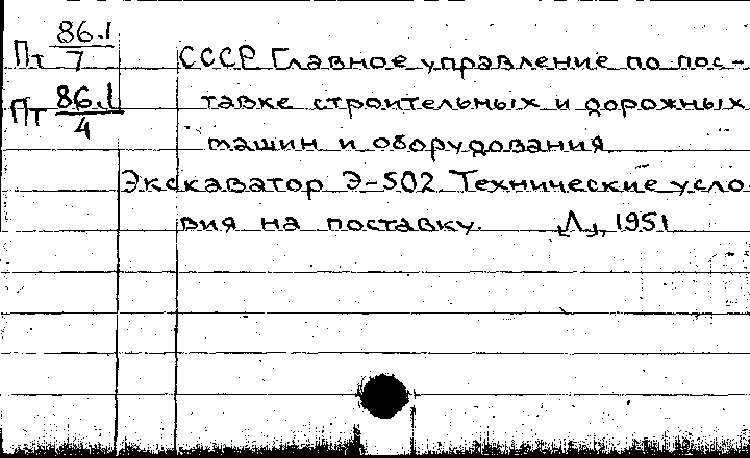 Пт 86.1/7 СССР Главное управление по пос-
Пт 86.1/4 тавке строительных и дорожных
машин и оборудования
Экскаватор Э-502 Технические усло
вия на поставку. [Л], 1951